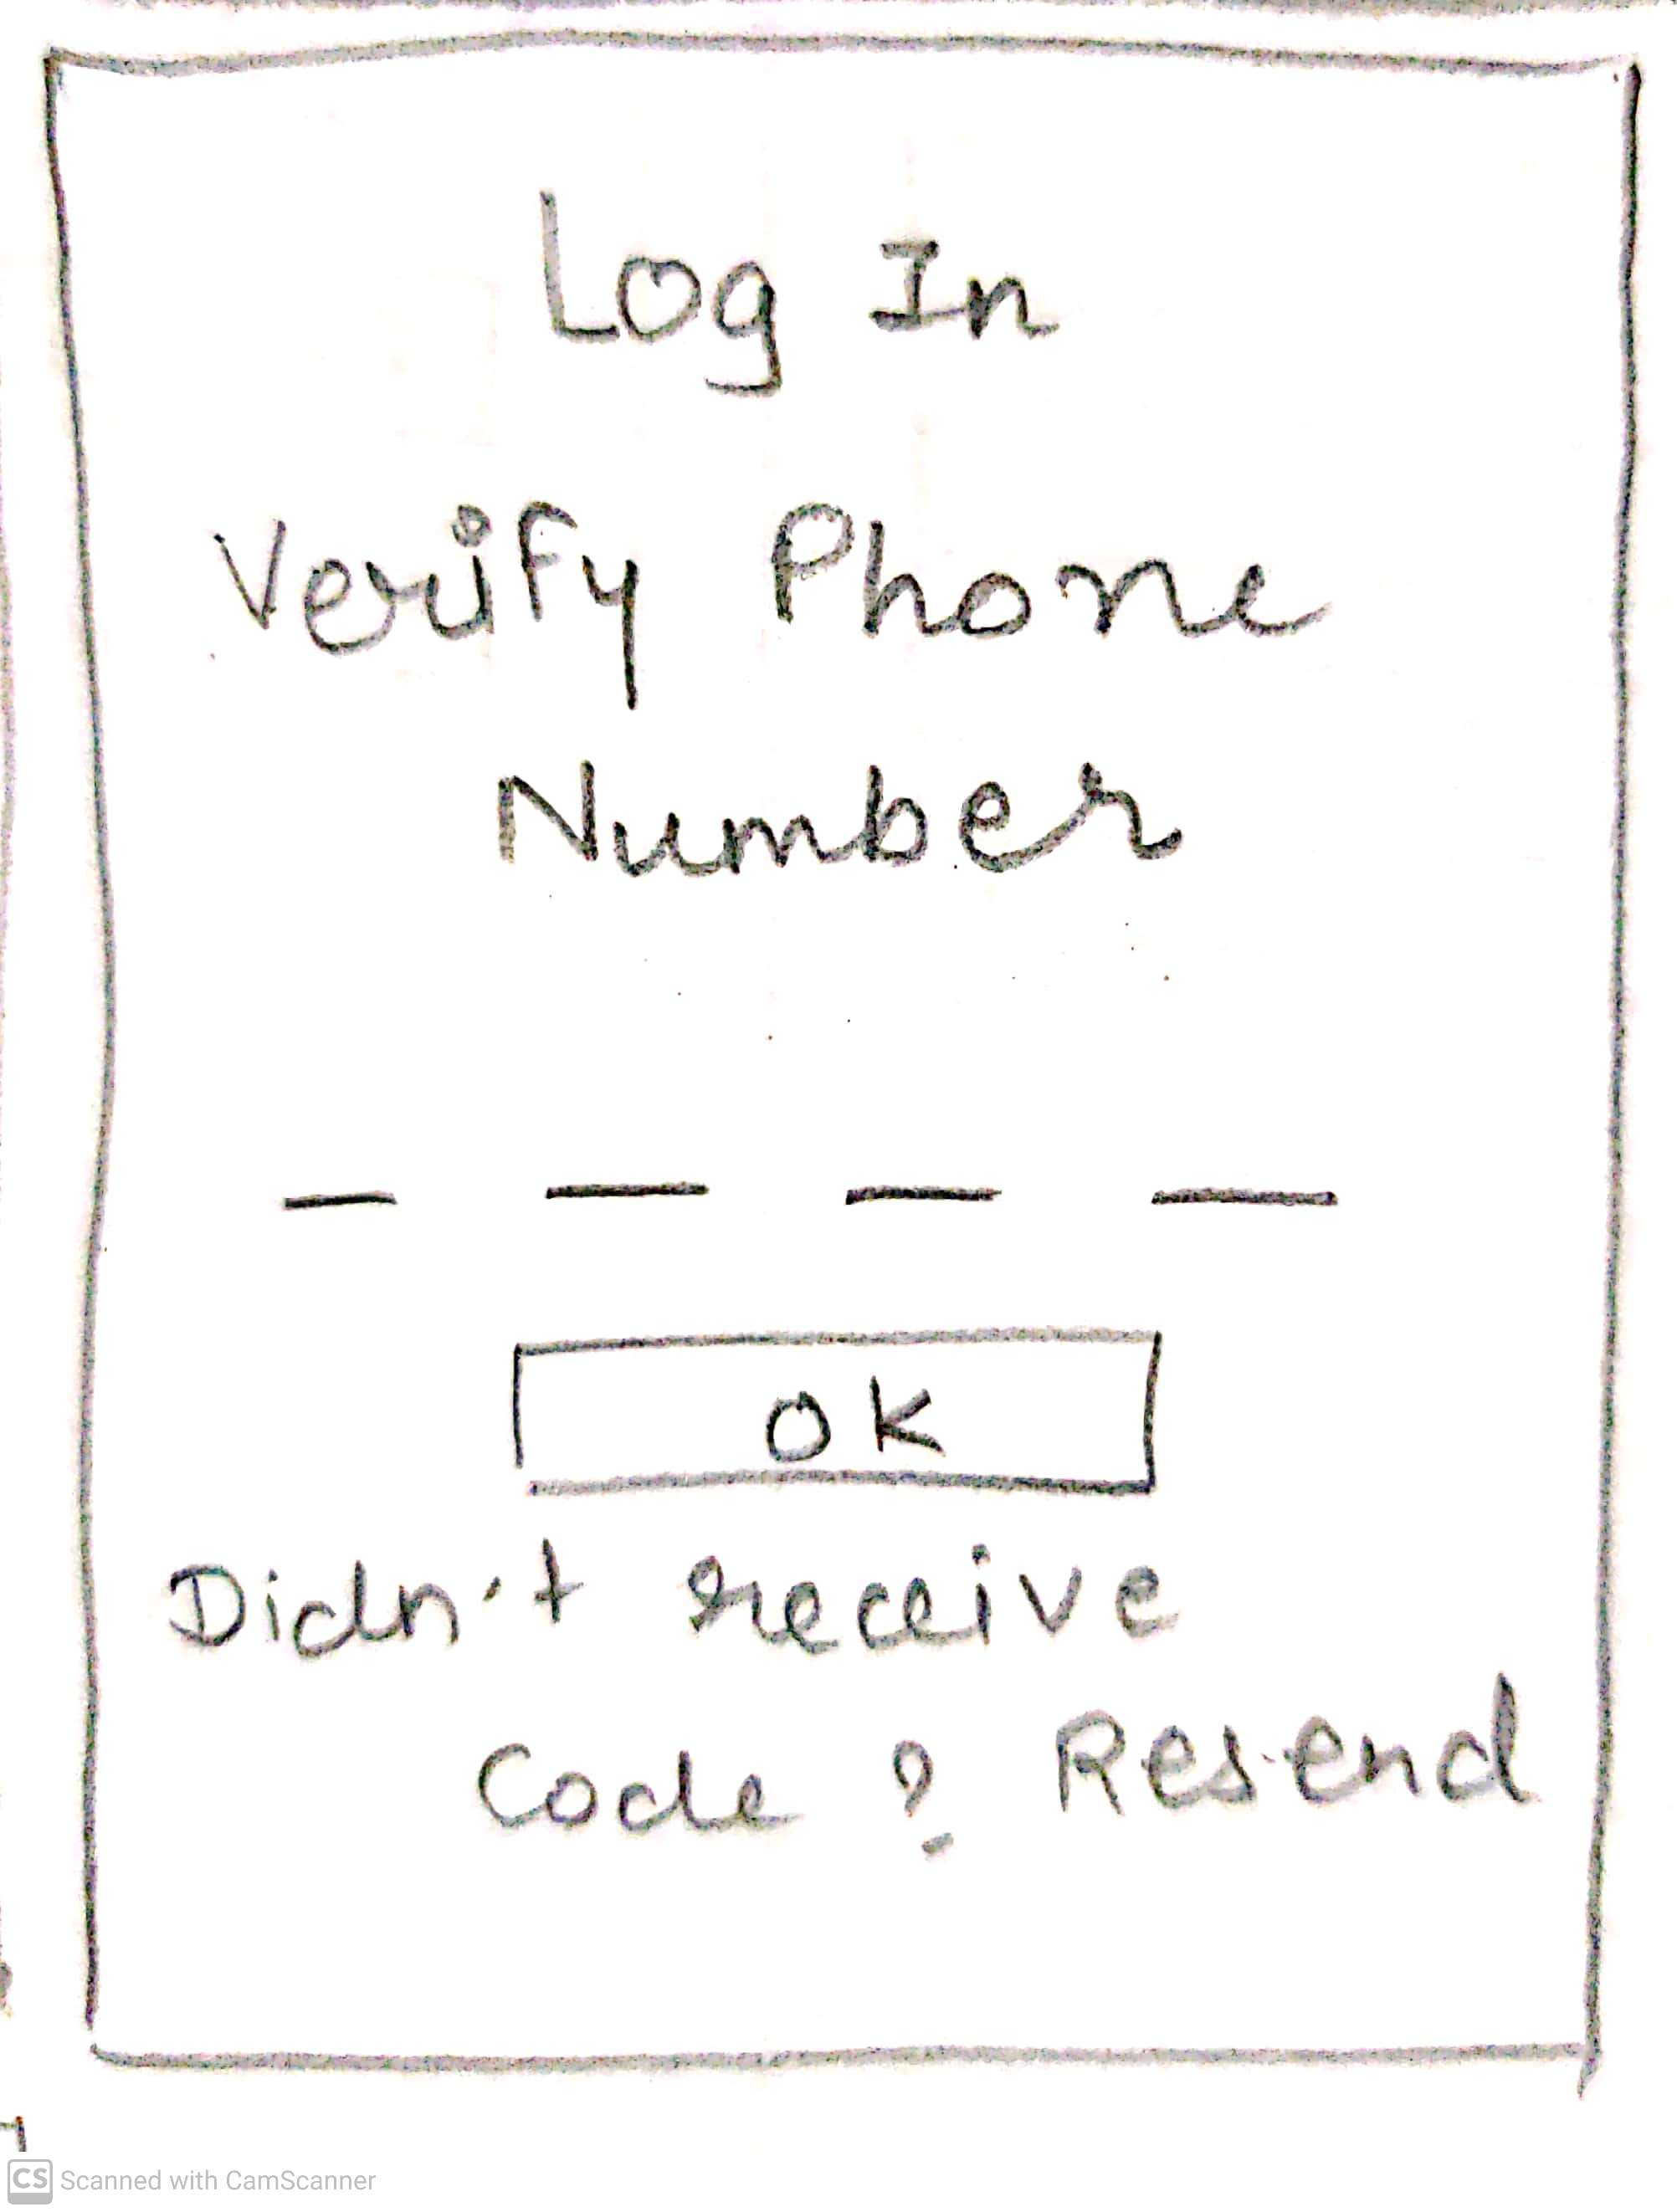 Log In
Verify Phone
Number
_ _ _ _
OK
Didn't receive
Code ? Resend
CS Scanned with CamScanner